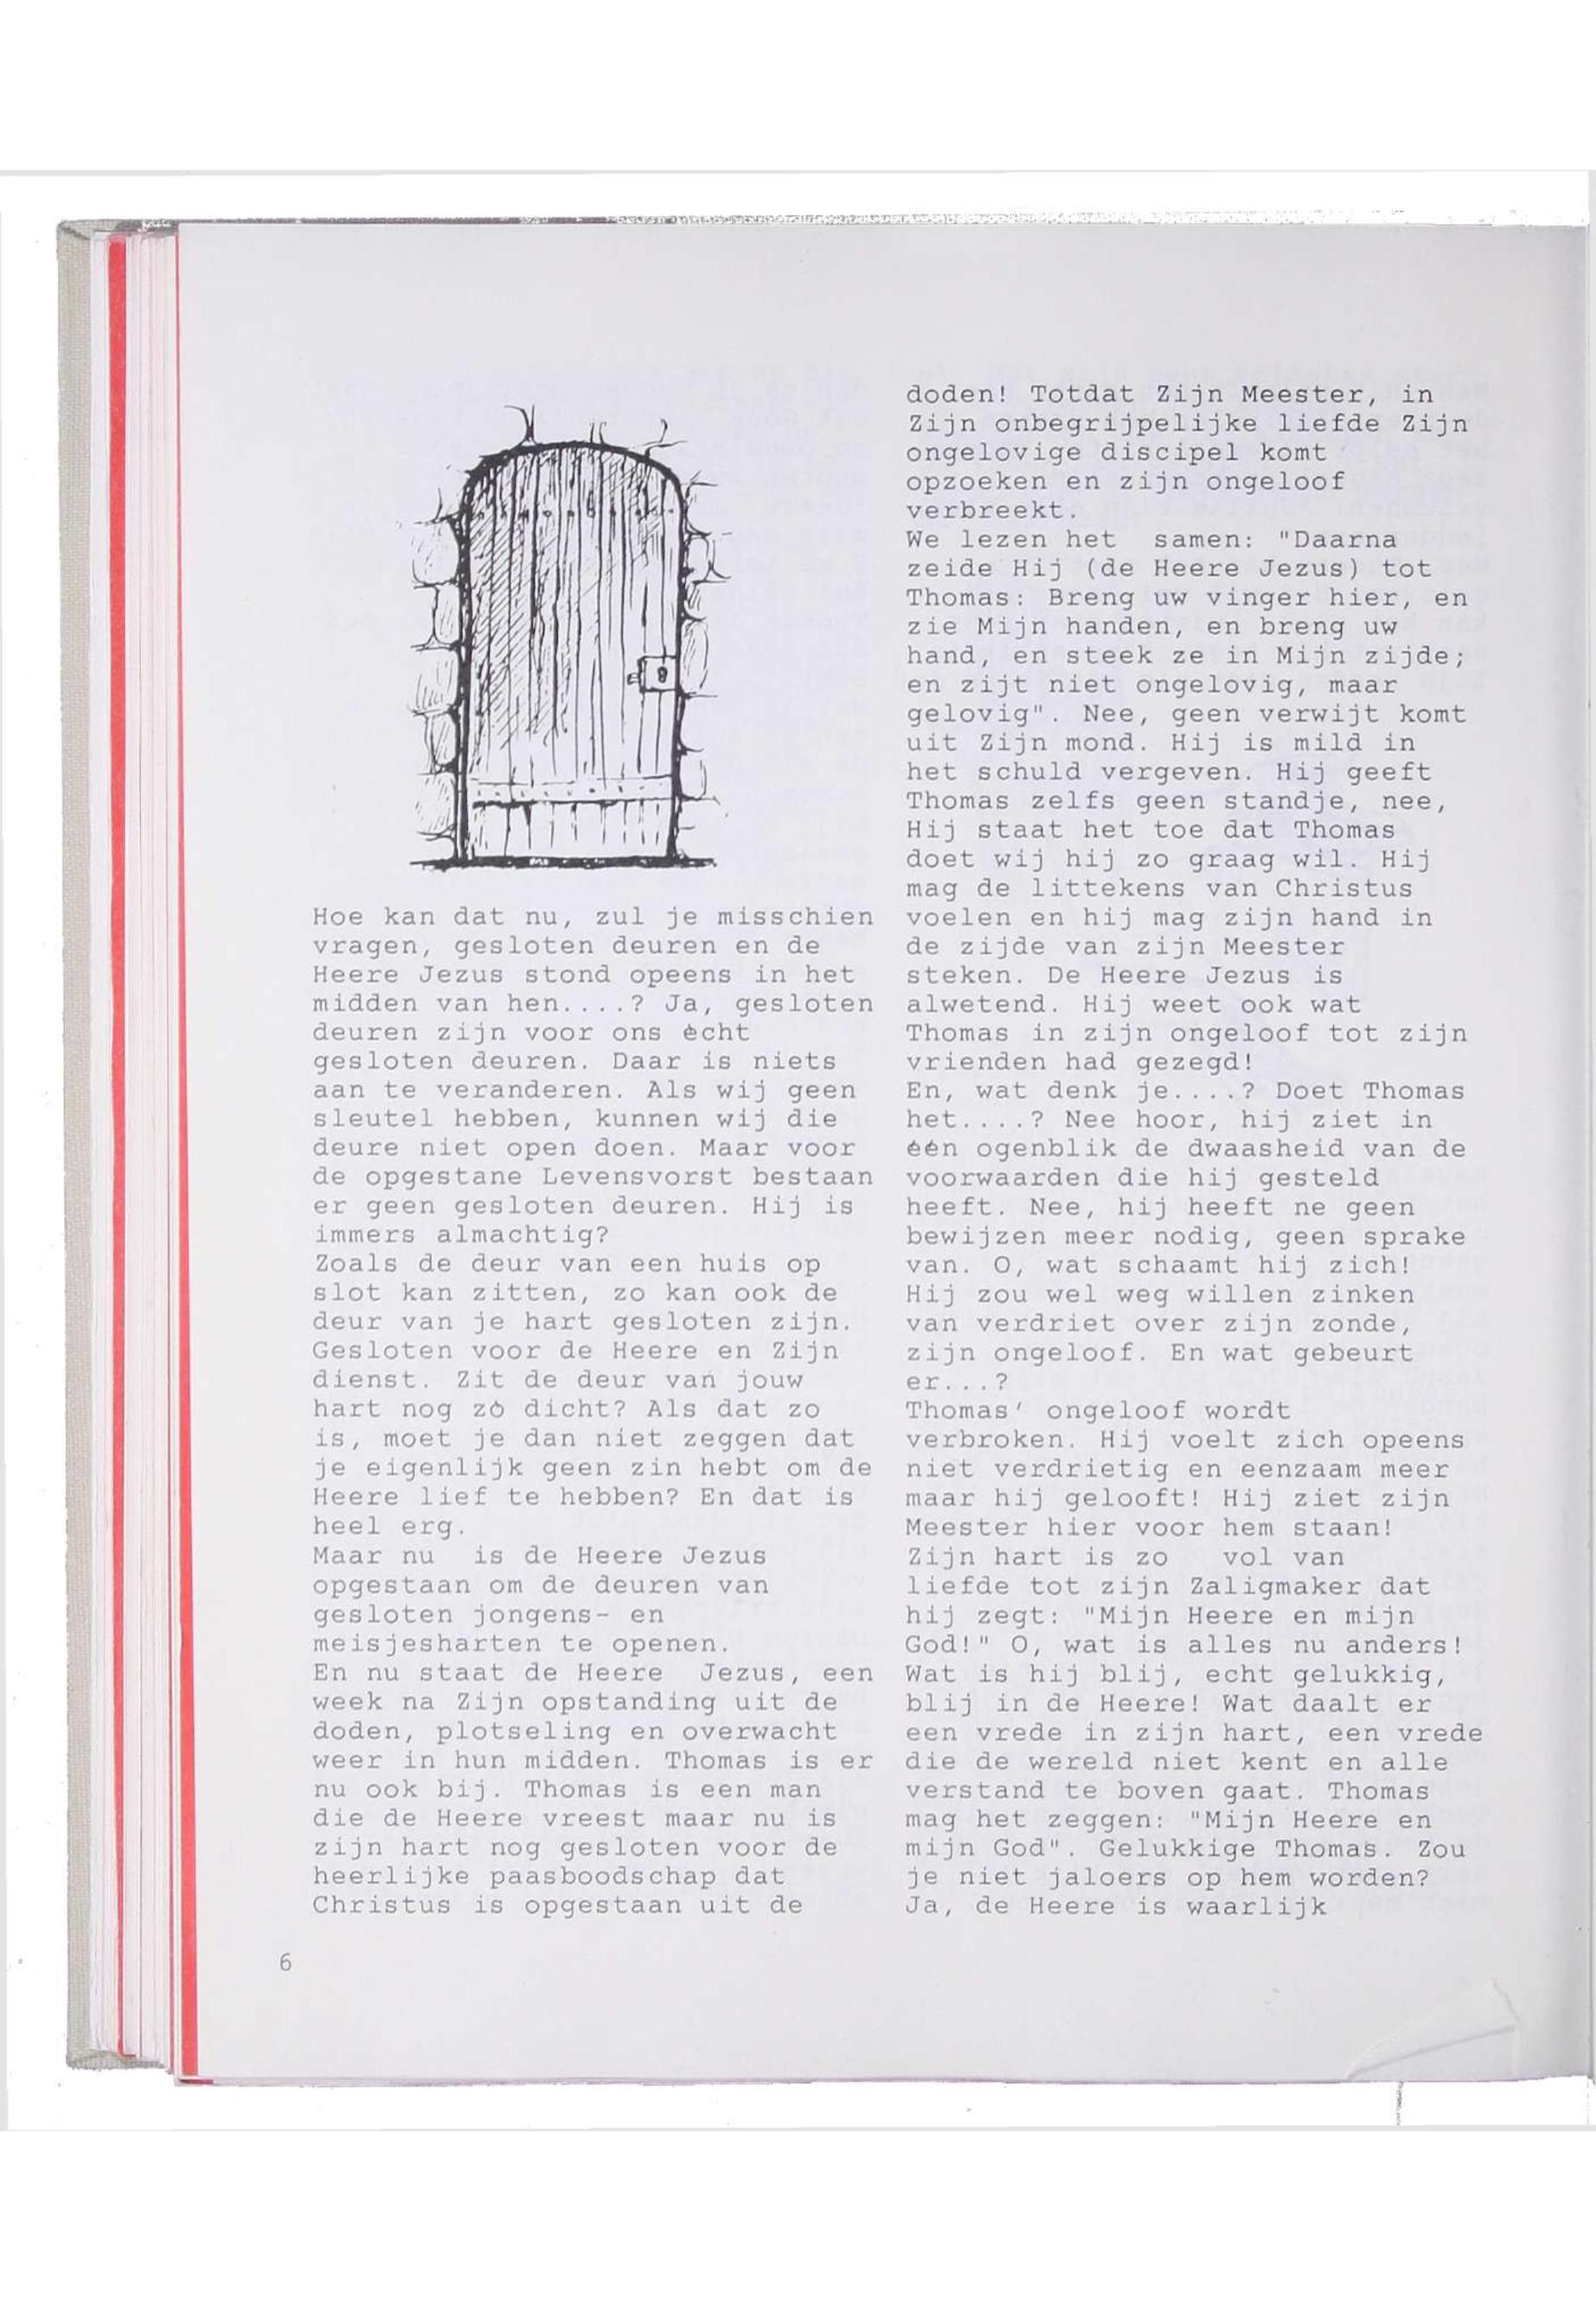 Hoe kan dat nu, zul je misschien
vragen, gesloten deuren en de
Heere Jezus stond opeens in het
midden van hen....? Ja, gesloten
deuren zijn voor ons ècht
gesloten deuren. Daar is niets
aan te veranderen. Als wij geen
sleutel hebben, kunnen wij die
deure niet open doen. Maar voor
de opgestane Levensvorst bestaan
er geen gesloten deuren. Hij is
immers almachtig?
Zoals de deur van een huis op
slot kan zitten, zo kan ook de
deur van je hart gesloten zijn.
Gesloten voor de Heere en Zijn
dienst. Zit de deur van jouw
hart nog zò dicht? Als dat zo
is, moet je dan niet zeggen dat
je eigenlijk geen zin hebt om de
Heere lief te hebben? En dat is
heel erg.
Maar nu is de Heere Jezus
opgestaan om de deuren van
gesloten jongens- en
meisjesharten te openen.
En nu staat de Heere Jezus, een
week na Zijn opstanding uit de
doden, plotseling en overwacht
weer in hun midden. Thomas is er
nu ook bij. Thomas is een man
die de Heere vreest maar nu is
zijn hart nog gesloten voor de
heerlijke paasboodschap dat
Christus is opgestaan uit de
doden! Totdat Zijn Meester, in
Zijn onbegrijpelijke liefde Zijn
ongelovige discipel komt
opzoeken en zijn ongeloof
verbreekt.
We lezen het samen: "Daarna
zeide Hij (de Heere Jezus) tot
Thomas: Breng uw vinger hier, en
zie Mijn handen, en breng uw
hand, en steek ze in Mijn zijde;
en zijt niet ongelovig, maar
gelovig". Nee, geen verwijt komt
uit Zijn mond. Hij is mild in
het schuld vergeven. Hij geeft
Thomas zelfs geen standje, nee,
Hij staat het toe dat Thomas
doet wij hij zo graag wil. Hij
mag de littekens van Christus
voelen en hij mag zijn hand in
de zijde van zijn Meester
steken. De Heere Jezus is
alwetend. Hij weet ook wat
Thomas in zijn ongeloof tot zijn
vrienden had gezegd!
En, wat denk je....? Doet Thomas
het....? Nee hoor, hij ziet in
één ogenblik de dwaasheid van de
voorwaarden die hij gesteld
heeft. Nee, hij heeft ne geen
bewijzen meer nodig, geen sprake
van. O, wat schaamt hij zich!
Hij zou wel weg willen zinken
van verdriet over zijn zonde,
zijn ongeloof. En wat gebeurt
er...?
Thomas' ongeloof wordt
verbroken. Hij voelt zich opeens
niet verdrietig en eenzaam meer
maar hij gelooft! Hij ziet zijn
Meester hier voor hem staan!
Zijn hart is zo vol van
liefde tot zijn Zaligmaker dat
hij zegt: "Mijn Heere en mijn
God!" O, wat is alles nu anders!
Wat is hij blij, echt gelukkig,
blij in de Heere! Wat daalt er
een vrede in zijn hart, een vrede
die de wereld niet kent en alle
verstand te boven gaat. Thomas
mag het zeggen: "Mijn Heere en
mijn God". Gelukkige Thomas. Zou
je niet jaloers op hem worden?
Ja, de Heere is waarlijk
6